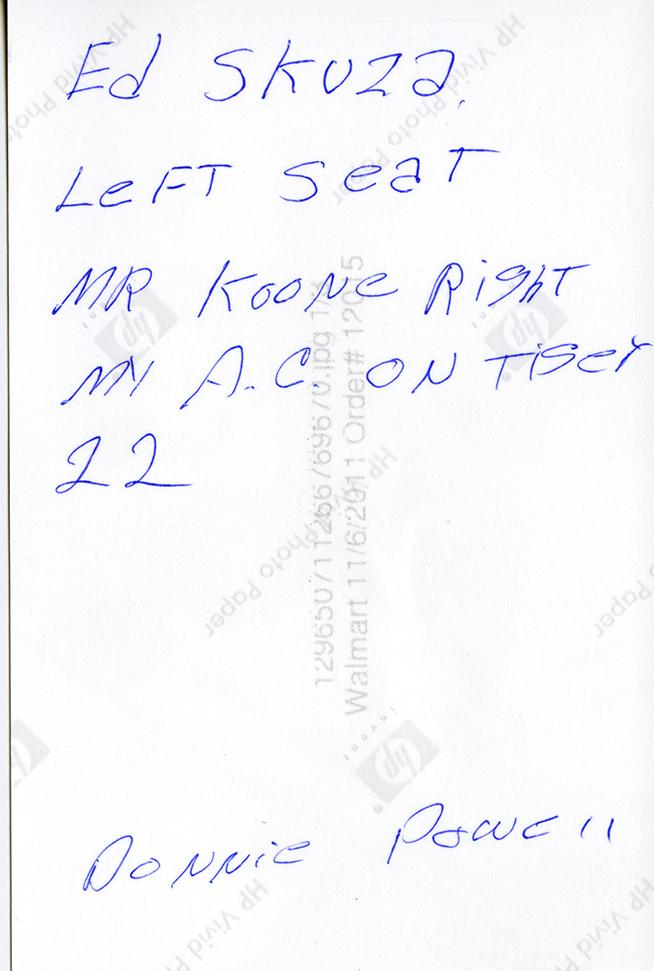 Ed SKUZa.
LeFT Seat
MR KOONe RigHT
MY A.C. ON Tiger
22
129650/11266/69670.jpg 1/
Walmart 11/6/2011 Order# 12015
DONNie Powell
HP Vivid Photo Paper
HP Vivid Photo Paper
HP Vivid Photo Paper
hp
invent